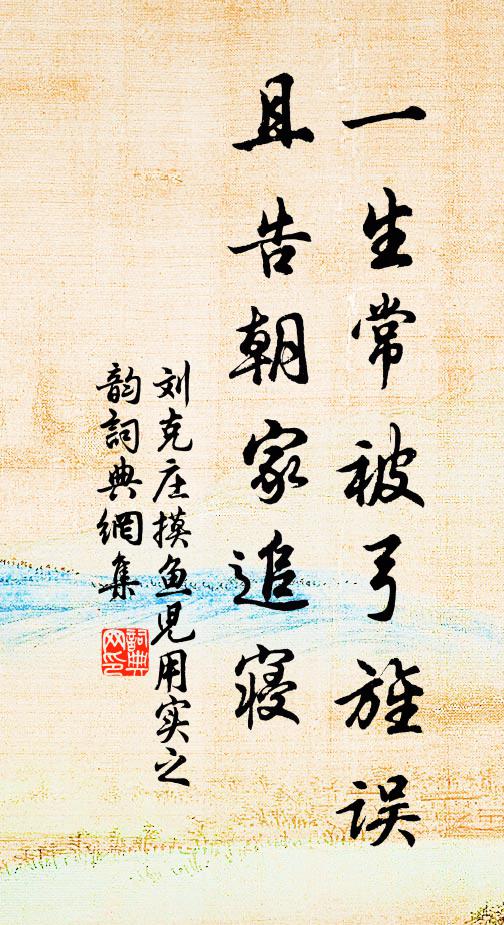 一生常被弓旌误
且告朝家追寝
刘克庄摸鱼儿用实之
韵詞典網集
詞典
网印